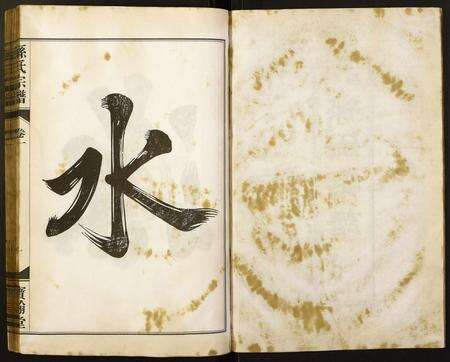 水
孫氏宗譜
卷一
堂